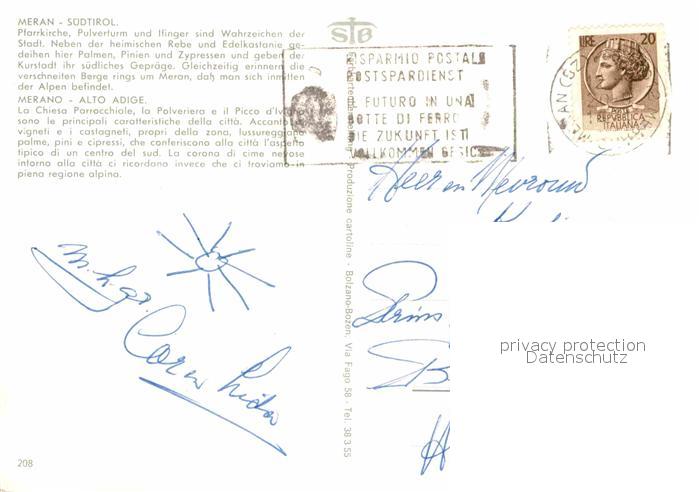 MERAN - SÜDTIROL.
Pfarrkirche, Pulverturm und Ifinger sind Wahrzeichen der
Stadt. Neben der heimischen Rebe und Edelkastanie ge-
deihen hier Palmen, Pinien und Zypressen und geben der
Kurstadt ihr südliches Gepräge. Gleichzeitig erinnern die
verschneiten Berge rings um Meran, daß man sich inmitten
der Alpen befindet.
MERANO - ALTO ADIGE.
La Chiesa Parrocchiale, la Polveriera e il Picco d'
sono le principali caratteristiche della città. Accanto
vigneti e i castagneti, propri della zona, lussureggiano
palme, pini e cipressi, che conferiscono alla città l'aspetto
tipico di un centro del sud. La corona di cime nevose
intorno alla città ci ricordano invece che ci troviamo in
piena regione alpina.
STB
RISPARMIO POSTALE
POSTSPARDIENST
IL FUTURO IN UNA
BOTTE DI FERRO
DIE ZUKUNFT IST
VOLLKOMMEN GESIC
LIRE 20
POSTE
REPUBBLICA
ITALIANA
Produzione cartoline - Bolzano-Bozen, Via Fago 58 - Tel. 38 3 55
Heer en Mevrouw
Prins
B
H
m. h. gr.
Cor en
privacy protection
Datenschutz
208